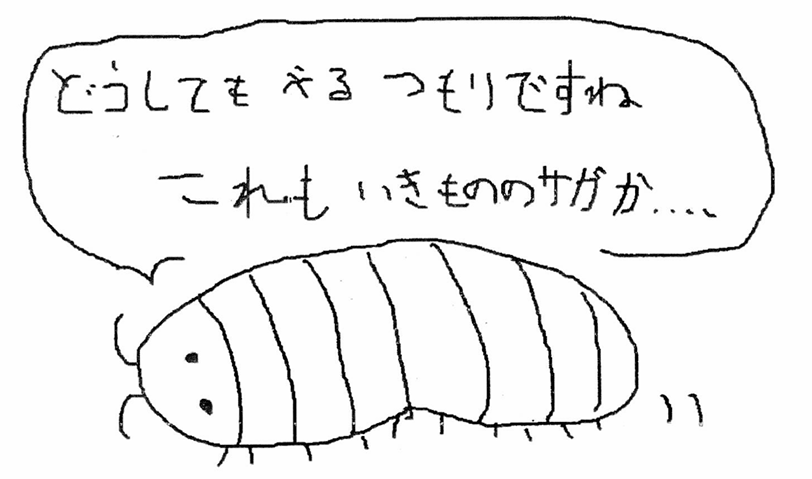 どうしても やる つもりですね
これも いきもののサガか....